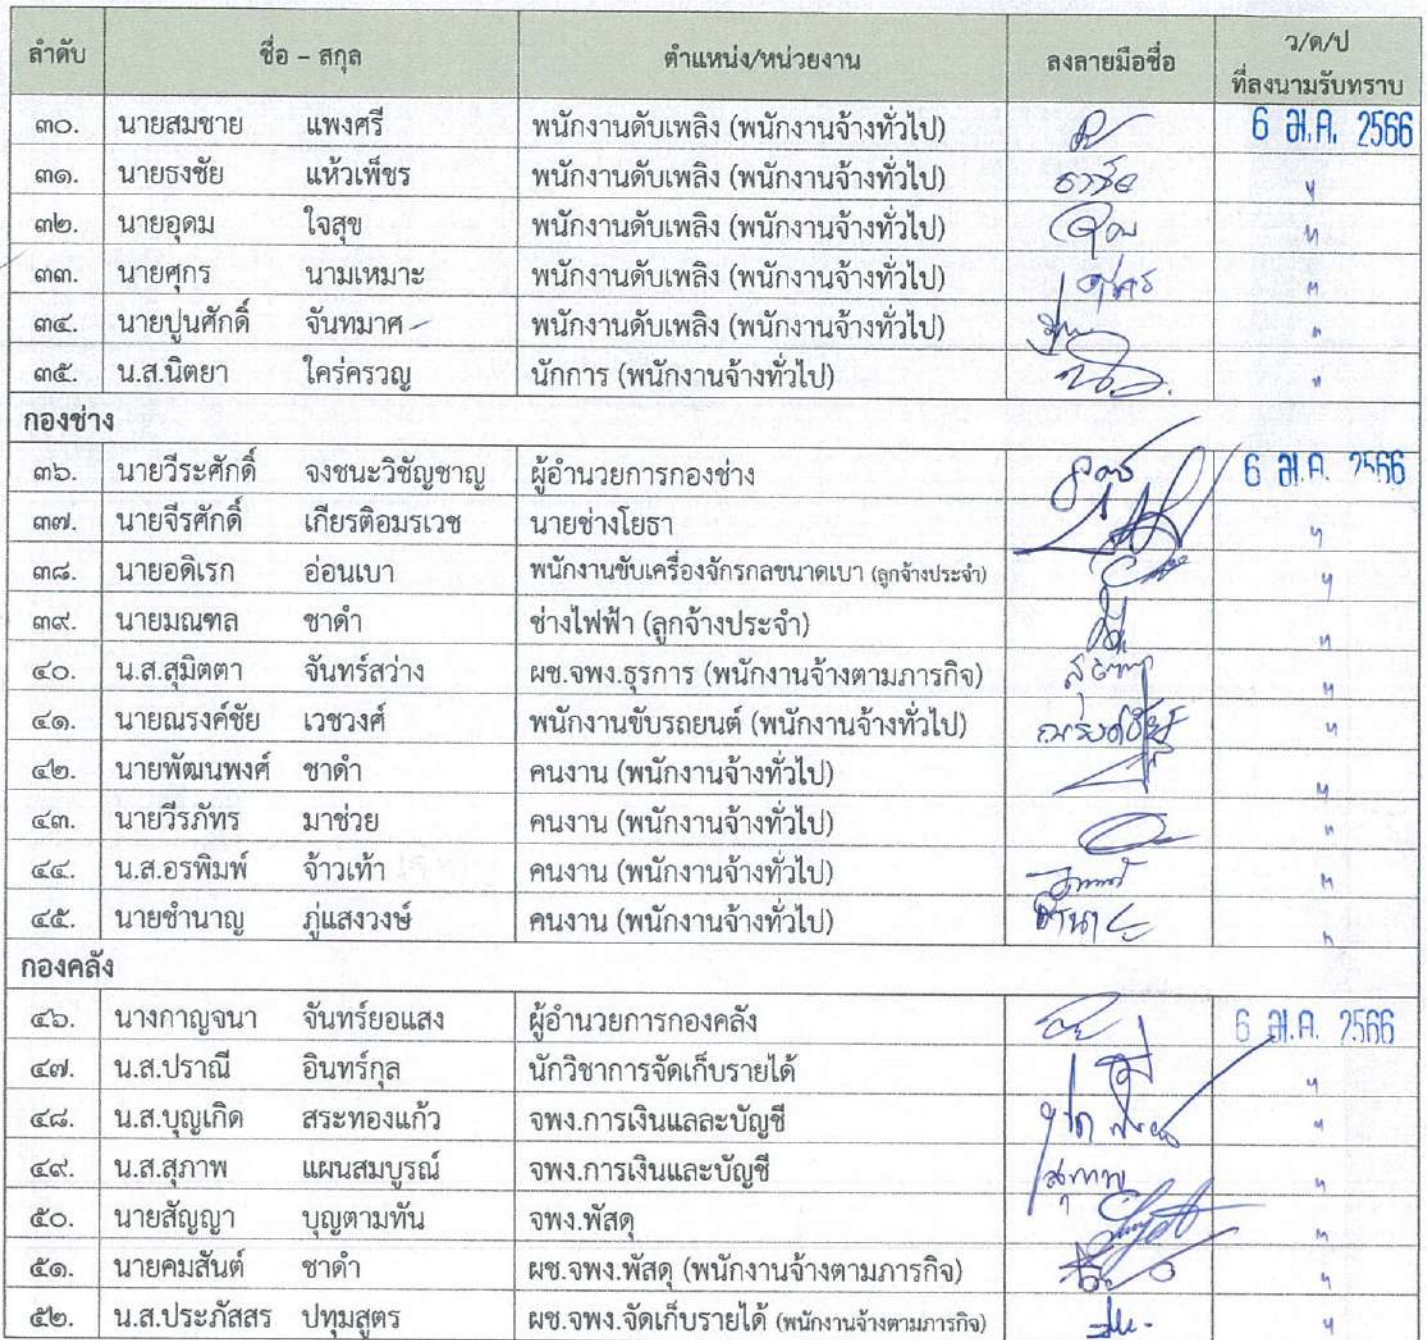 ลำดับ ชื่อ – สกุล ตำแหน่ง/หน่วยงาน ลงลายมือชื่อ ว/ด/ป
ที่ลงนามรับทราบ
๓๐. นายสมชาย แพงศรี พนักงานดับเพลิง (พนักงานจ้างทั่วไป) 6 ม.ค. 2566
๓๑. นายธงชัย แห้วเพ็ชร พนักงานดับเพลิง (พนักงานจ้างทั่วไป) ธงชัย "
๓๒. นายอุดม ใจสุข พนักงานดับเพลิง (พนักงานจ้างทั่วไป) "
๓๓. นายศุกร นามเหมาะ พนักงานดับเพลิง (พนักงานจ้างทั่วไป) ศุกร "
๓๔. นายปูนศักดิ์ จันทมาศ พนักงานดับเพลิง (พนักงานจ้างทั่วไป) "
๓๕. น.ส.นิตยา ใคร่ครวญ นักการ (พนักงานจ้างทั่วไป) "
กองช่าง
๓๖. นายวีระศักดิ์ จงชนะวิชัญชาญ ผู้อำนวยการกองช่าง 6 ม.ค. 2566
๓๗. นายจีรศักดิ์ เกียรติอมรเวช นายช่างโยธา "
๓๘. นายอดิเรก อ่อนเบา พนักงานขับเครื่องจักรกลขนาดเบา (ลูกจ้างประจำ) "
๓๙. นายมณฑล ชาดำ ช่างไฟฟ้า (ลูกจ้างประจำ) "
๔๐. น.ส.สุมิตตา จันทร์สว่าง ผช.จพง.ธุรการ (พนักงานจ้างตามภารกิจ) "
๔๑. นายณรงค์ชัย เวชวงศ์ พนักงานขับรถยนต์ (พนักงานจ้างทั่วไป) ณรงค์ชัย "
๔๒. นายพัฒนพงศ์ ชาดำ คนงาน (พนักงานจ้างทั่วไป) "
๔๓. นายวีรภัทร มาช่วย คนงาน (พนักงานจ้างทั่วไป) "
๔๔. น.ส.อรพิมพ์ จ้าวเท้า คนงาน (พนักงานจ้างทั่วไป) "
๔๕. นายชำนาญ ภู่แสงวงษ์ คนงาน (พนักงานจ้างทั่วไป) "
กองคลัง
๔๖. นางกาญจนา จันทร์ยอแสง ผู้อำนวยการกองคลัง 6 ม.ค. 2566
๔๗. น.ส.ปราณี อินทร์กุล นักวิชาการจัดเก็บรายได้ "
๔๘. น.ส.บุญเกิด สระทองแก้ว จพง.การเงินแลละบัญชี "
๔๙. น.ส.สุภาพ แผนสมบูรณ์ จพง.การเงินและบัญชี สุภาพ "
๕๐. นายสัญญา บุญตามทัน จพง.พัสดุ "
๕๑. นายคมสันต์ ชาดำ ผช.จพง.พัสดุ (พนักงานจ้างตามภารกิจ) "
๕๒. น.ส.ประภัสสร ปทุมสูตร ผช.จพง.จัดเก็บรายได้ (พนักงานจ้างตามภารกิจ) "